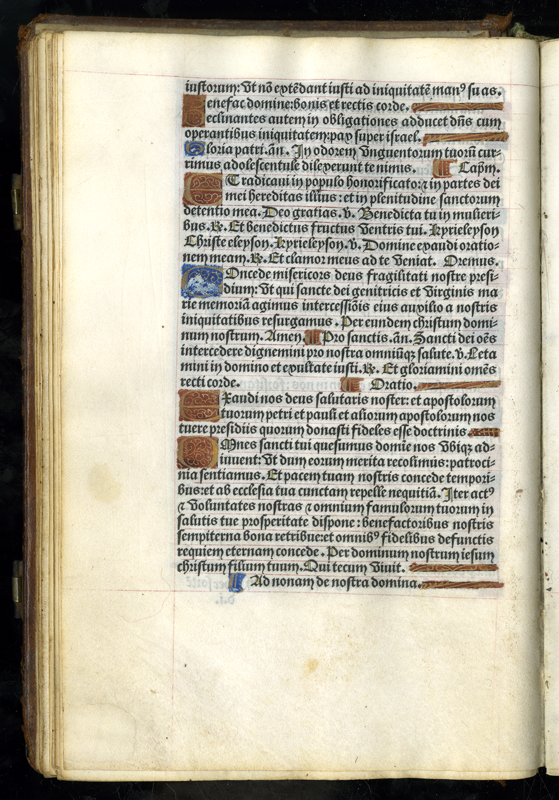 iustorum: Vt nō extēdant iusti ad iniquitatē manꝰ suas.
Benefac domine: bonis et rectis corde.
Declinantes autem in obligationes adducet dñs cum
operantibus iniquitatem: pax super israel.
Gloria patri. añ. In odorem Vnguentorum tuorū cur-
rimus adolescentule dilexerunt te nimis. Capm.
ET radicaui in populo honorificato: ⁊ in partes dei
mei hereditas illius: et in plenitudine sanctorum
detentio mea. Deo gratias. ℣. Benedicta tu in mulieri-
bus. ℟. Et benedictus fructus Ventris tui. Kyrieleyson
Christe eleyson. Kyrieleyson. ℣. Domine exaudi oratio-
nem meam. ℟. Et clamor meus ad te Veniat. Oremus.
COncede misericors deus fragilitati nostre presi-
dium: Vt qui sancte dei genitricis et Virginis ma
rie memoriā agimus intercessiōis eius auxilio a nostris
iniquitatibus resurgamus. Per eundem christum domi-
num nostrum. Amen. Pro sanctis. añ. Sancti dei oēs
intercedere dignemini pro nostra omniūq̃ salute. ℣. Leta
mini in domino et exultate iusti. ℟. Et gloriamini omēs
recti corde. Oratio.
EXaudi nos deus salutaris noster: et apostolorum
tuorum petri et pauli et aliorum apostolorum nos
tuere presidiis quorum donasti fideles esse doctrinis.
OMnes sancti tui quesumus domie nos Vbiq̃ ad-
iuuent: Vt dum eorum merita recolimus: patroci-
nia sentiamus. Et pacem tuam nostris concede tempori-
bus: et ab ecclesia tua cunctam repelle nequitiā. Iter actꝰ
⁊ Voluntates nostras ⁊ omnium famulorum tuorum in
salutis tue prosperitate dispone: benefactoribus nostris
sempiterna bona retribue: et omnibꝰ fidelibus defunctis
requiem eternam concede. Per dominum nostrum iesum
christum filium tuum. Qui tecum Viuit.
Ad nonam de nostra domina.